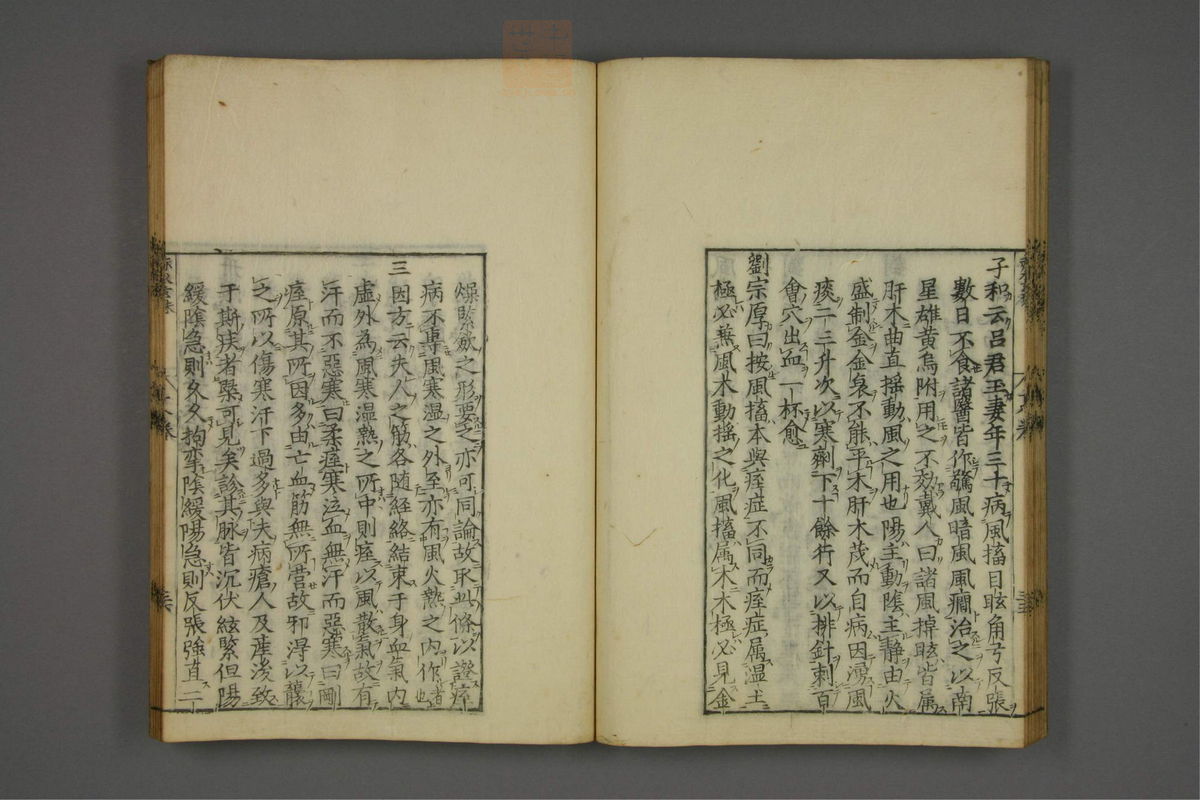 子和云呂君玉妻年三十病風搐目眩角弓反張
數日不食諸醫皆作驚風暗風風癇治之以南
星雄黄烏附用之不効戴人曰諸風掉眩皆属
肝木曲直揺動風之用也陽主動陰主静由火
盛制金金衰不能平木肝木茂而自病因湧風
痰二三升次以寒劑下十餘行又以排針刺百
會穴出血一杯愈
劉宗厚曰按風搐本與痓症不同而痓症属湿土
極必兼風木動揺之化風搐属木木極必見金
燥緊歛之形要之亦可同論故取此條以證痓
病不專風寒湿之外至亦有風火熱之内作者也
三因方云夫人之筋各随経絡結束于身血氣内
虚外為風寒湿熱之所中則痓以風散氣故有
汗而不惡寒曰柔痓寒泣血無汗而惡寒曰剛
痓原其所因多由亡血筋無所营故邪淂以襲
之所以傷寒汗下過多與夫病瘡人及産後致
于斯疾者槩可見矣診其脉皆沉伏絃緊但陽
緩陰急則久久拘挛陰緩陽急則反張強直二